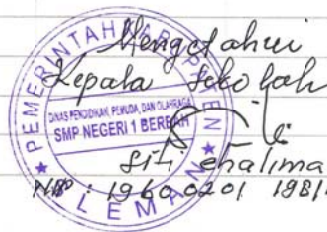 Mengetahui
Kepala Sekolah
PEMERINTAH KABUPATEN
DINAS PENDIDIKAN, PEMUDA, DAN OLAHRAGA
SMP NEGERI 1 BERBAH
SLEMAN
Siti
NIP : 19600201 1981